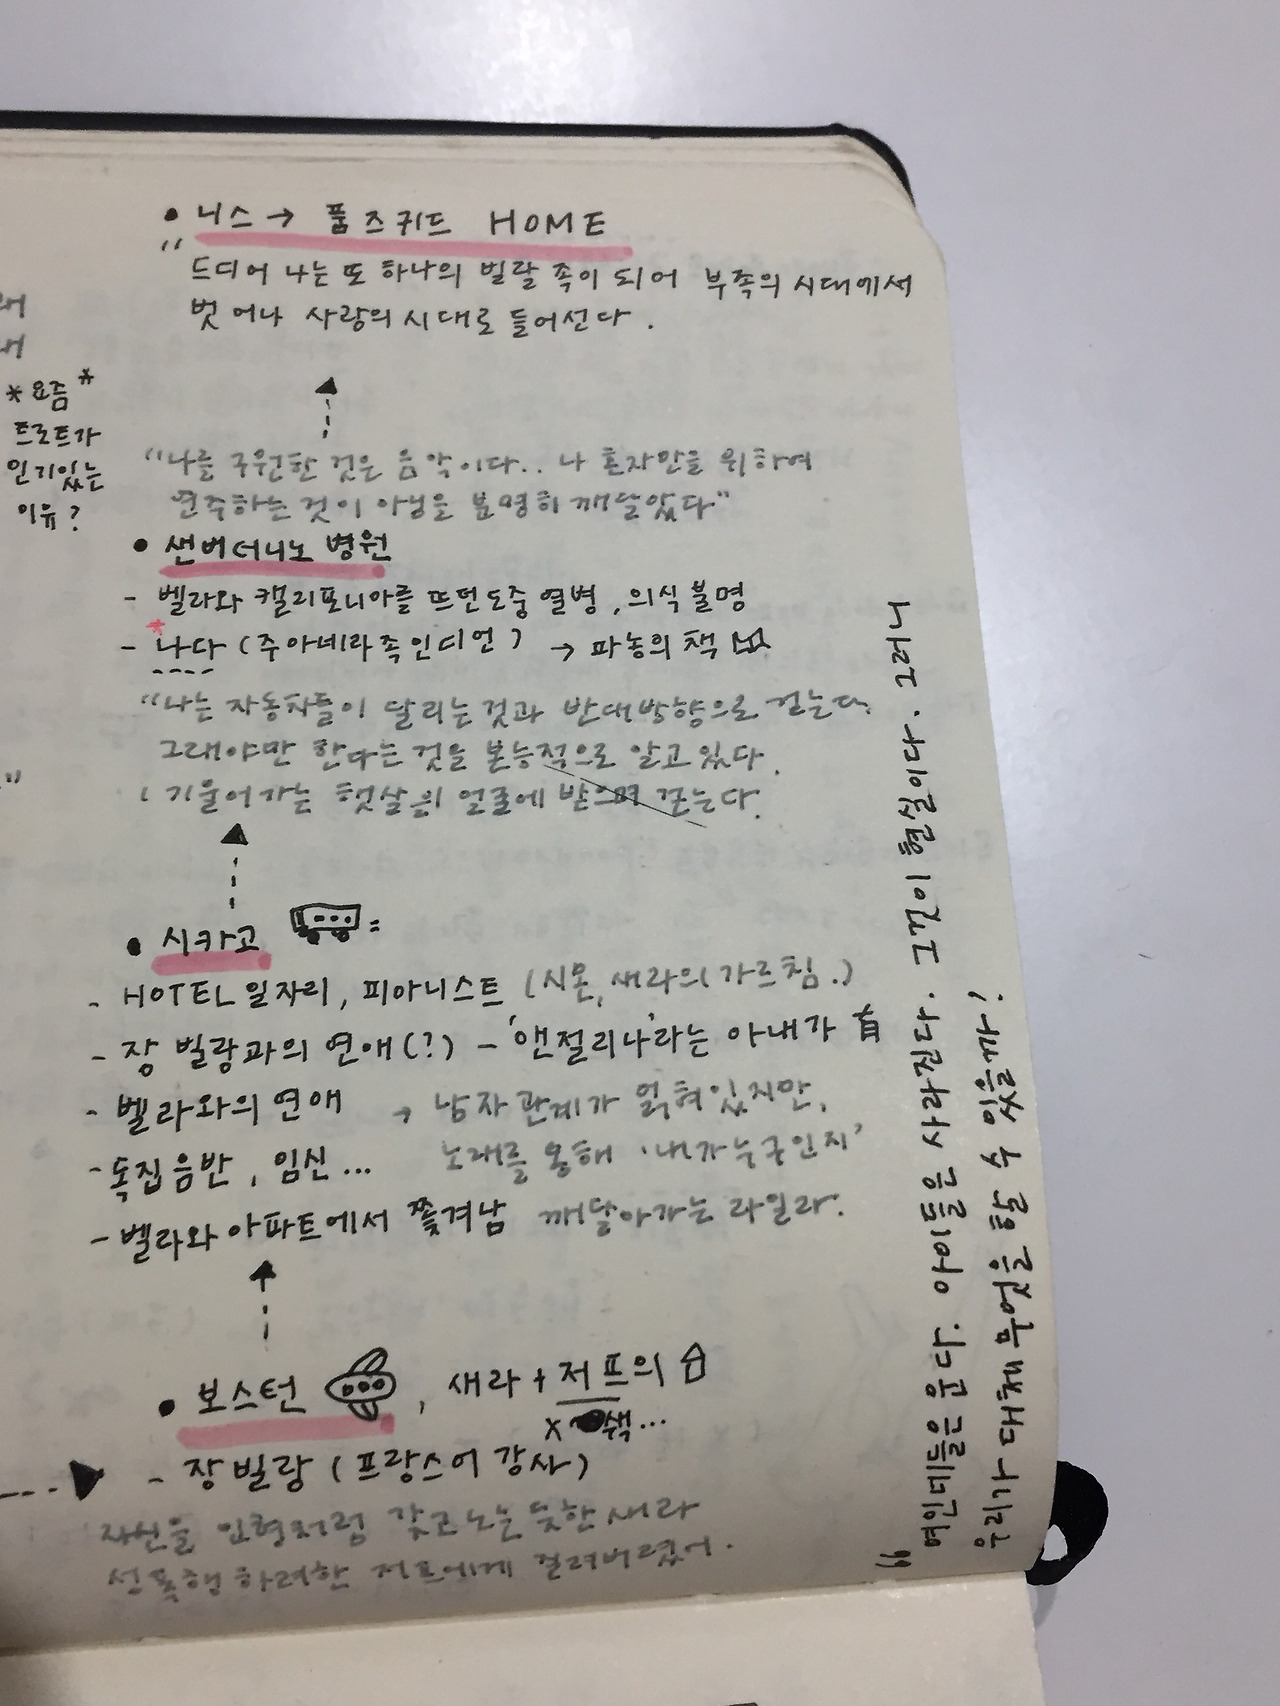 • 니스 → 품즈귀드 HOME
"드디어 나는 또 하나의 빌랄 족이 되어 부족의 시대에서
벗어나 사랑의 시대로 들어선다.
*요즘*
트로트가
인기있는
이유?
"나를 구원한 것은 음악이다.. 나 혼자만을 위하여
연주하는 것이 아님을 분명히 깨달았다"
• 샌버더니노 병원
- 벨라와 캘리포니아를 뜨던도중 열병, 의식불명
- *나다 (주아네라족인디언) → 파농의 책
"나는 자동차들이 달리는것과 반대방향으로 걷는다.
그래야만 한다는 것을 본능적으로 알고있다.
기울어가는 햇살을 얼굴에 받으며 걷는다.
• 시카고
- HOTEL 일자리, 피아니스트 (시몬, 새라의 가르침.)
- 장 빌랑과의 연애(?) - '앤절리나'라는 아내가 有
- 벨라와의 연애 → 남자관계가 얽혀있지만,
- 독집음반, 임신... 노래를 통해 '내가누구인지'
- 벨라와 아파트에서 쫓겨남 깨달아가는 라일라.
• 보스턴, 새라 + 저프의
X 색...
- 장 빌랑 (프랑스어 강사)
자신을 인형처럼 갖고노는 듯한 새라
성폭행하려한 저프에게 질려버렸어.
"여인네들은 운다. 아이들은 사라진다. 그것이 돌질이다. 그러나
우리가 대체 무엇을 할 수 있을까?